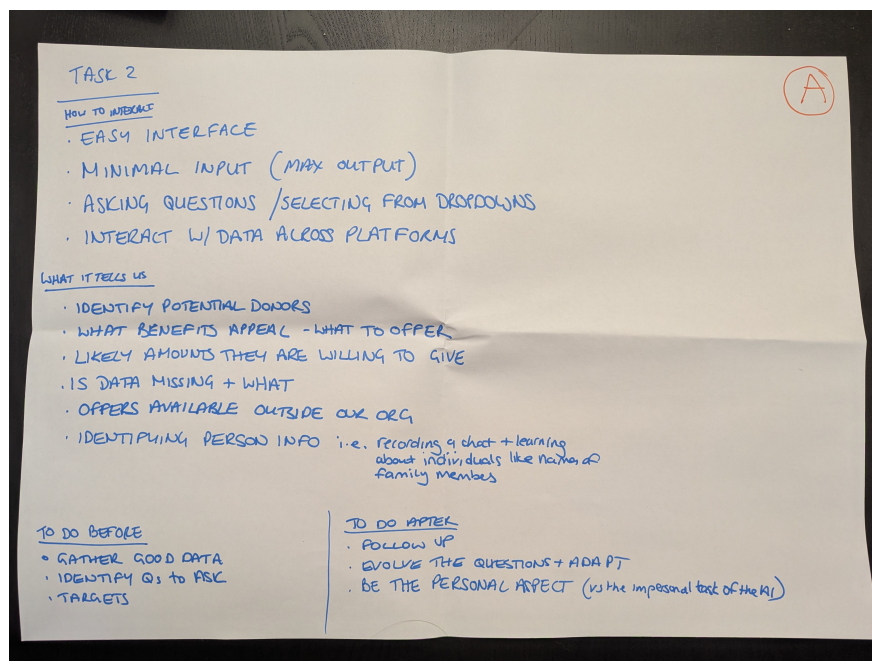 TASK 2
A
HOW TO INTERACT
· EASY INTERFACE
· MINIMAL INPUT (MAX OUTPUT)
· ASKING QUESTIONS / SELECTING FROM DROPDOWNS
· INTERACT W/ DATA ACROSS PLATFORMS
WHAT IT TELLS US
· IDENTIFY POTENTIAL DONORS
· WHAT BENEFITS APPEAL - WHAT TO OFFER
· LIKELY AMOUNTS THEY ARE WILLING TO GIVE
· IS DATA MISSING + WHAT
· OFFERS AVAILABLE OUTSIDE OUR ORG
· IDENTIFYING PERSON INFO i.e. recording a chat + learning
about individuals like names of
family members
TO DO BEFORE
· GATHER GOOD DATA
· IDENTIFY Qs to ASK
· TARGETS
TO DO AFTER
· FOLLOW UP
· EVOLVE THE QUESTIONS + ADAPT
· BE THE PERSONAL ASPECT (vs the impersonal task of the AI)